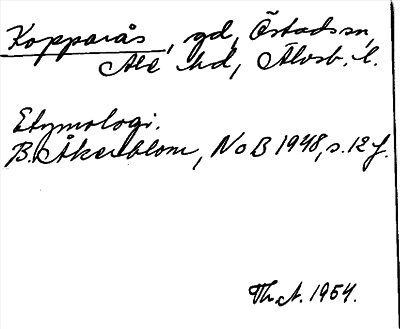 Kopparås, gd, Östads sn,
Ale hd, Älvsb. l.
Etymologi.
B. Åkerblom, NoB 1948, s. 12 f.
Th. A. 1954.